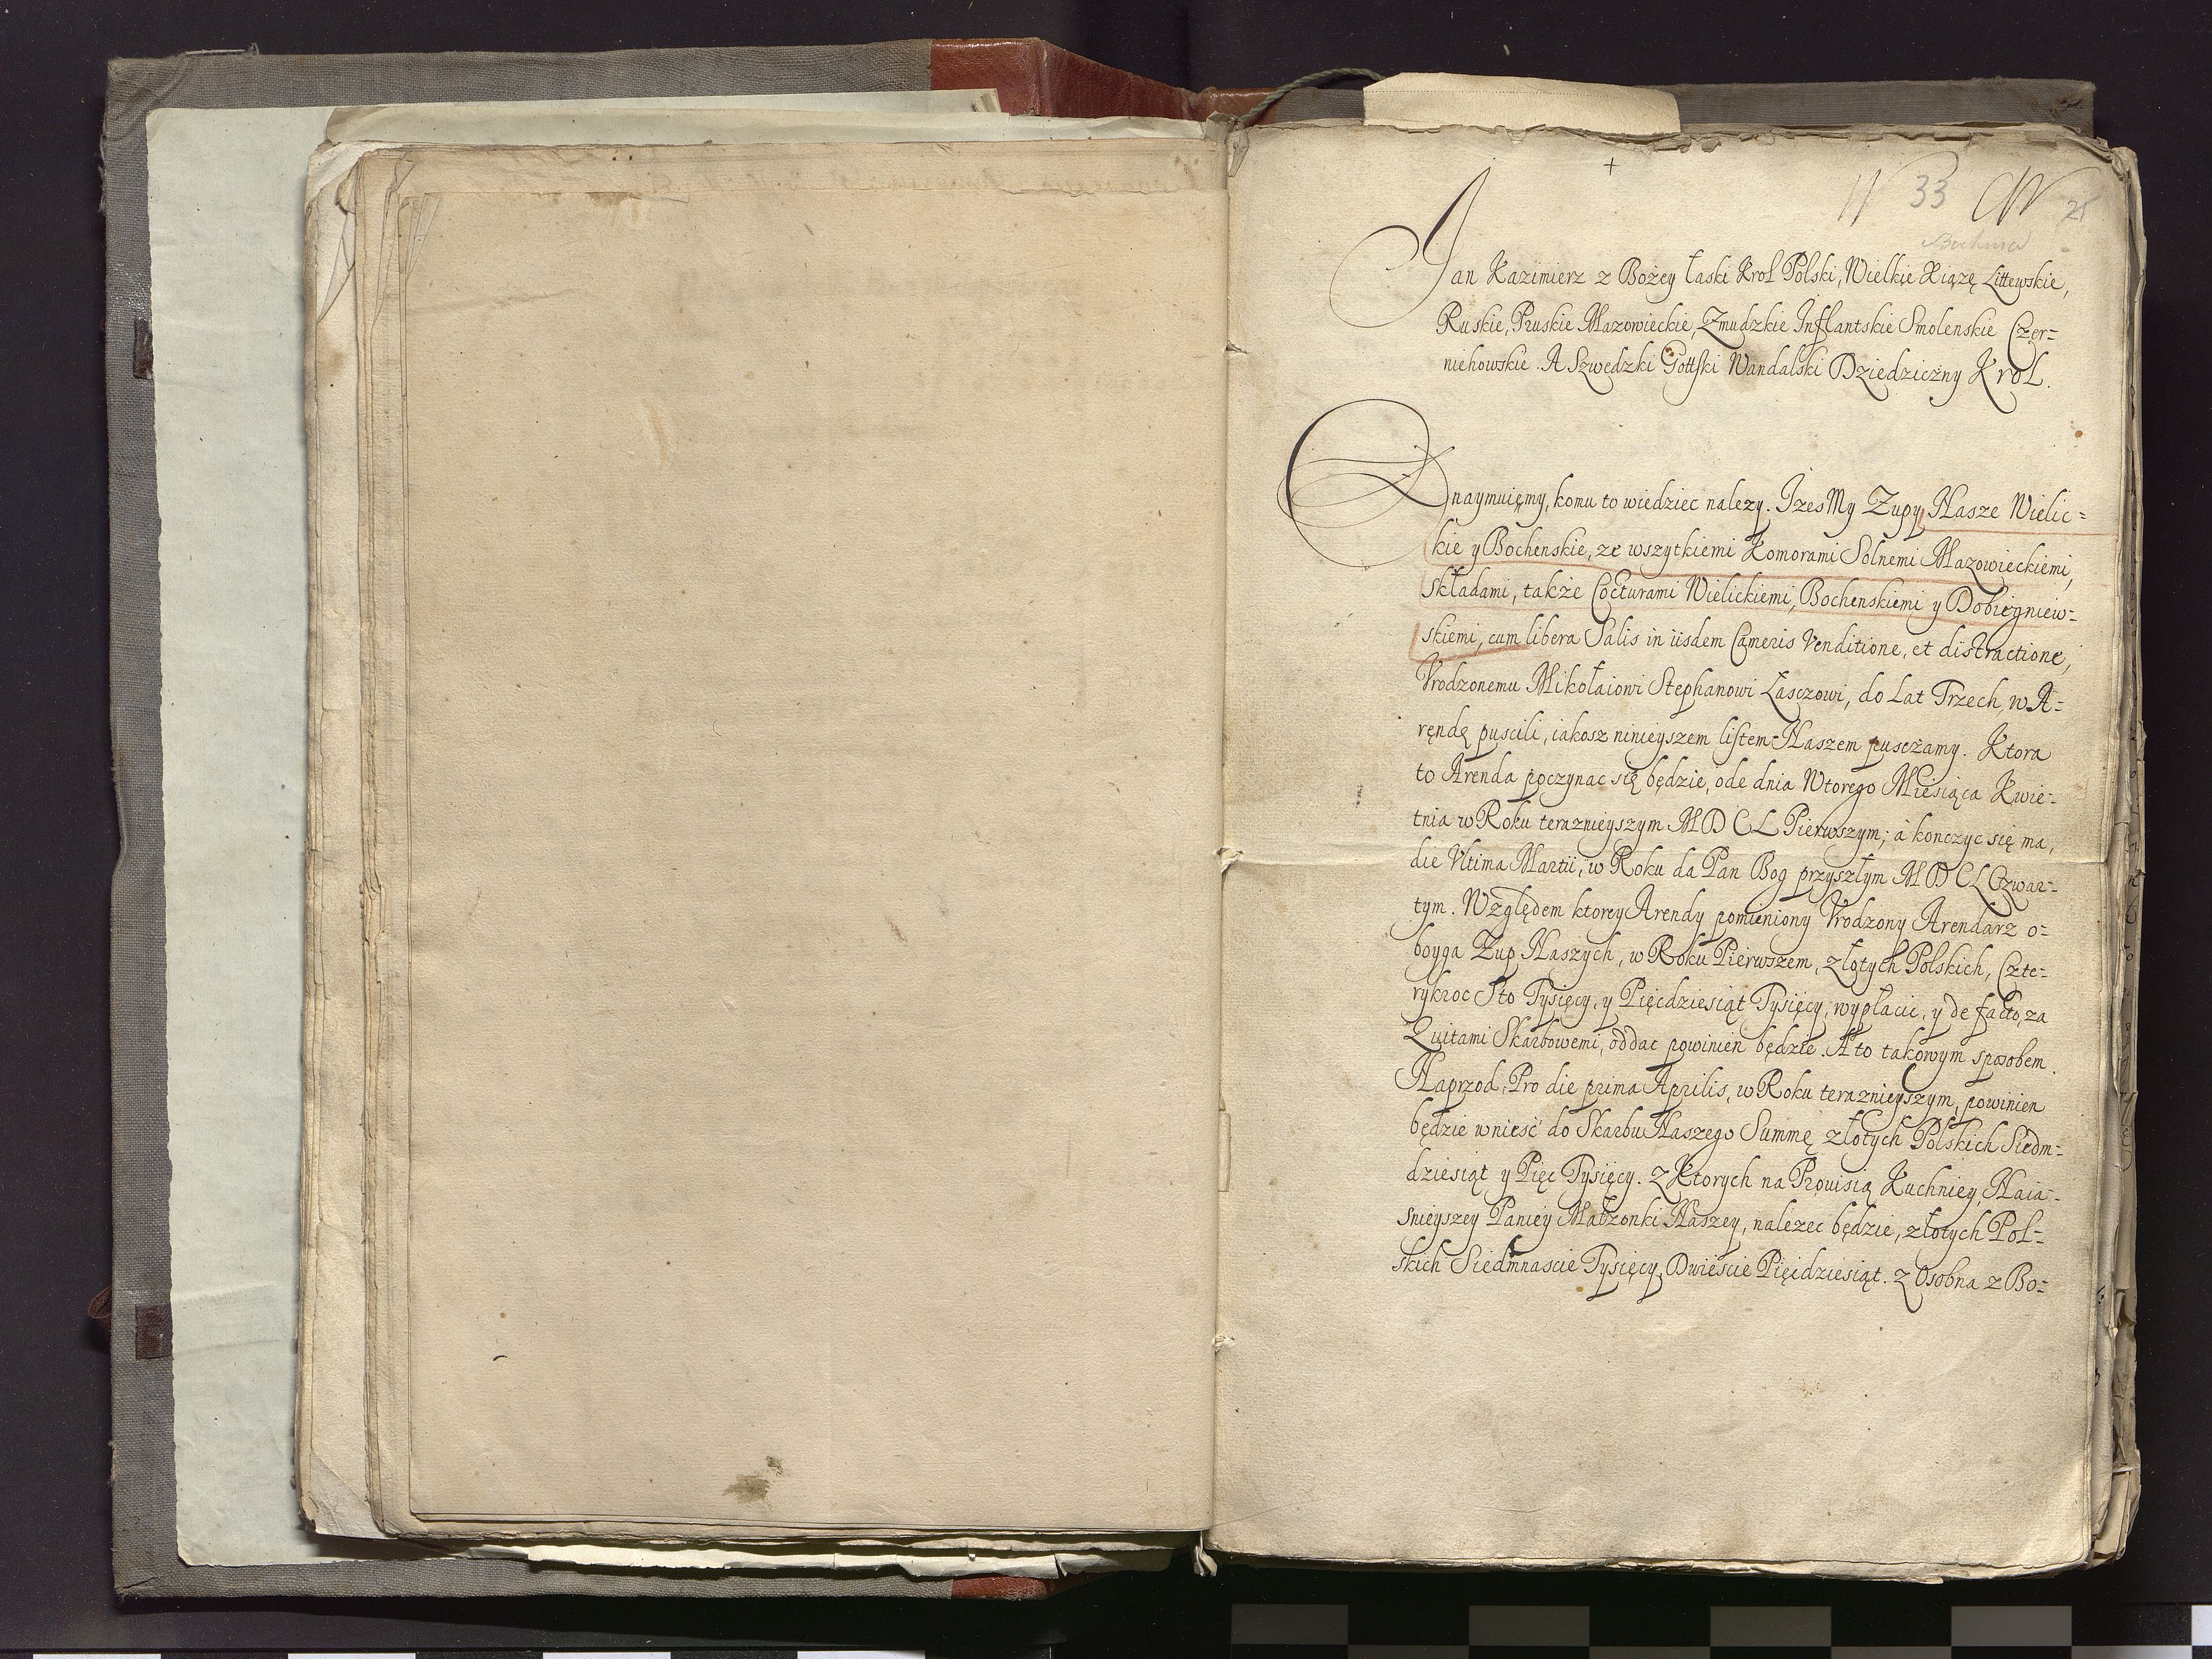 +
33
21
Bochnia
Jan Kazimierz z Bożey łaski Krol Polski, Wielkie Xiązę Littewskie,
Ruskie, Pruskie Mazowieckie, Zmudzkie Inflantskie Smolenskie Czer=
niehowskie. A Szwedzki Gottski Wandalski Dziedziczny Krol.
Oznaymuięmy, komu to wiedziec nalezy. Izes My Zupy Nasze Wielic=
kie y Bochenskie, ze wszytkiemi Komorami Solnemi Mazowieckiemi,
składami, także Cocturami Wielickiemi, Bochenskiemi y Dobiegniew=
skiemi, cum libera Salis in iisdem Cameris Venditione, et distractione,
Vrodzonemu Mikołaiowi Stephanowi Lasczowi, do Lat Trzech, w A=
ręndę puscili, iakosz ninieyszem listem Naszem pusczamy. Ktora
to Arenda poczynac się będzie, ode dnia Wtorego Miesiąca Kwie=
tnia w Roku teraznieyszym MDCL Pierwszym; á konczyc się ma,
die Vltima Martii, w Roku da Pan Bog przyszłym MDCL Czwar=
tym. Względem ktorey Arendy pomieniony Vrodzony Arendarz o=
boyga Zup Naszych, w Roku Pierwszem, złotych Polskich, Czte=
rykroc Sto Tysięcy, y Pięcdziesiąt Tysięcy, wypłacic, y de facto, za
Quitami Skarbowemi, oddac powinien będzie. A to takowym sposobem.
Naprzod, Pro die prima Aprilis, w Roku teraznieyszym, powinien
będzie wniesć do Skarbu Naszego Summę złotych Polskich Siedm=
dziesiąt y Pięc Tysięcy. z Ktorych na Prowisią Kuchniey, Naia=
snieyszey Paniey Małzonki Naszey, nalezec będzie, złotych Pol=
skich Siedmnascie Tysięcy, Dwiescie Pięcdziesiąt. z Osobna z Bo=